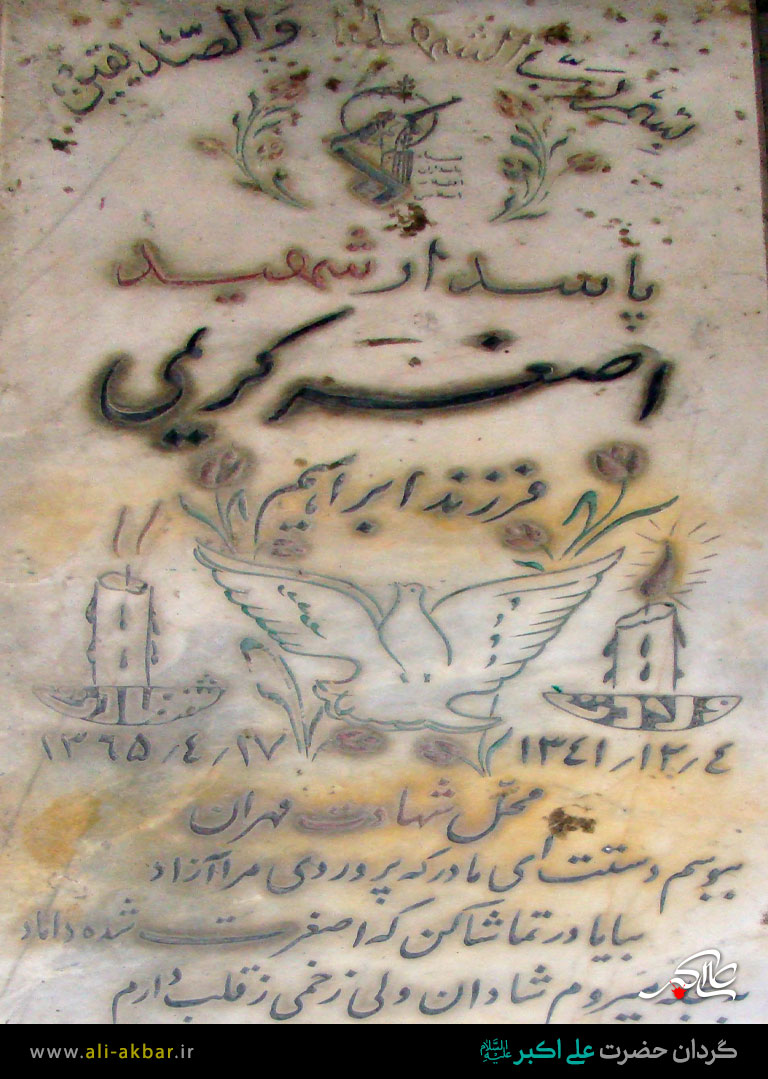 بسم رب الشهداء والصدیقین
پاسدار شهید
اصغر کریمی
فرزند ابراهیم
ولادت شهادت
۱۳۴۱٫۱۲٫٤ ۱۳٦۵٫٤٫۱۷
محل شهادت مهران
ببوسم دستت ای مادر که پروردی مرا آزاد
بیا مادر تماشا کن که اصغرت شده داماد
میروم شادان ولی زخمی ز قلب دارم
علی اکبر
گردان حضرت علی اکبر علیه السلام
www.ali-akbar.ir